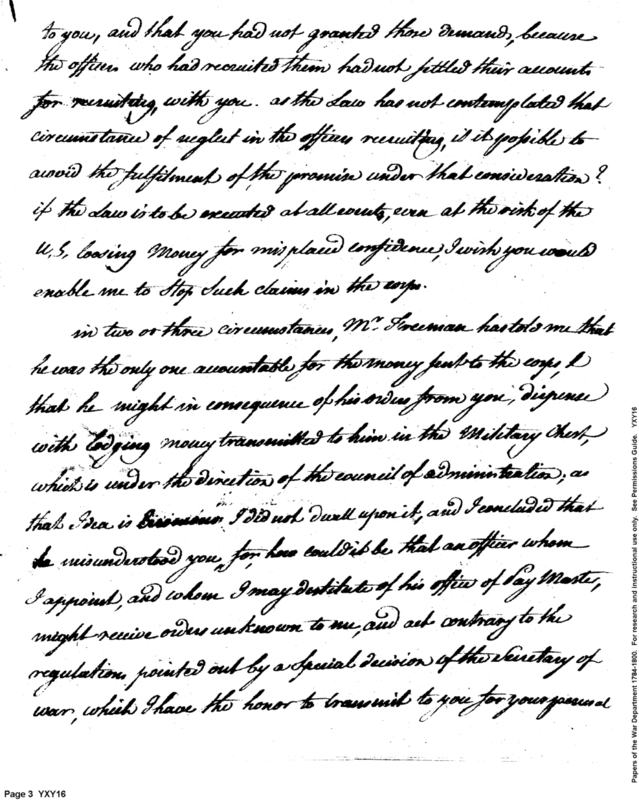 to you, and that you had not granted those demands, because
the officers who had recruited them had not settled their accounts
for recruiting, with you. as the Law has not contemplated that
circumstance of neglect in the officers recruiting, is it possible to
avoid the fulfilment of the promise under that consideration?
if the Law is to be executed at all events, even at the risk of the
U.S. loosing Money for misplaced confidence, I wish you would
enable me to stop such claims in the corps.
in two or three circumstances, Mr. Freeman has told me that
he was the only one accountable for the money sent to the corps, &
that he might in consequence of his orders from you, dispense
with lodging money transmitted to him in the Military Chest,
which is under the direction of the council of administration; as
that Idea is I did not dwall upon it, and I concluded that
he misunderstood you, for, how could it be that an officer whom
I appoint, and whom I may destitute of his office of Pay Master,
might receive orders unknown to me, and act contrary to the
regulations pointed out by a special decision of the Secretary of
war, which I have the honor to transmit to you for your perusal
Page 3 YXY16
Papers of the War Department 1784-1800. For research and instructional use only. See Permissions Guide. YXY16